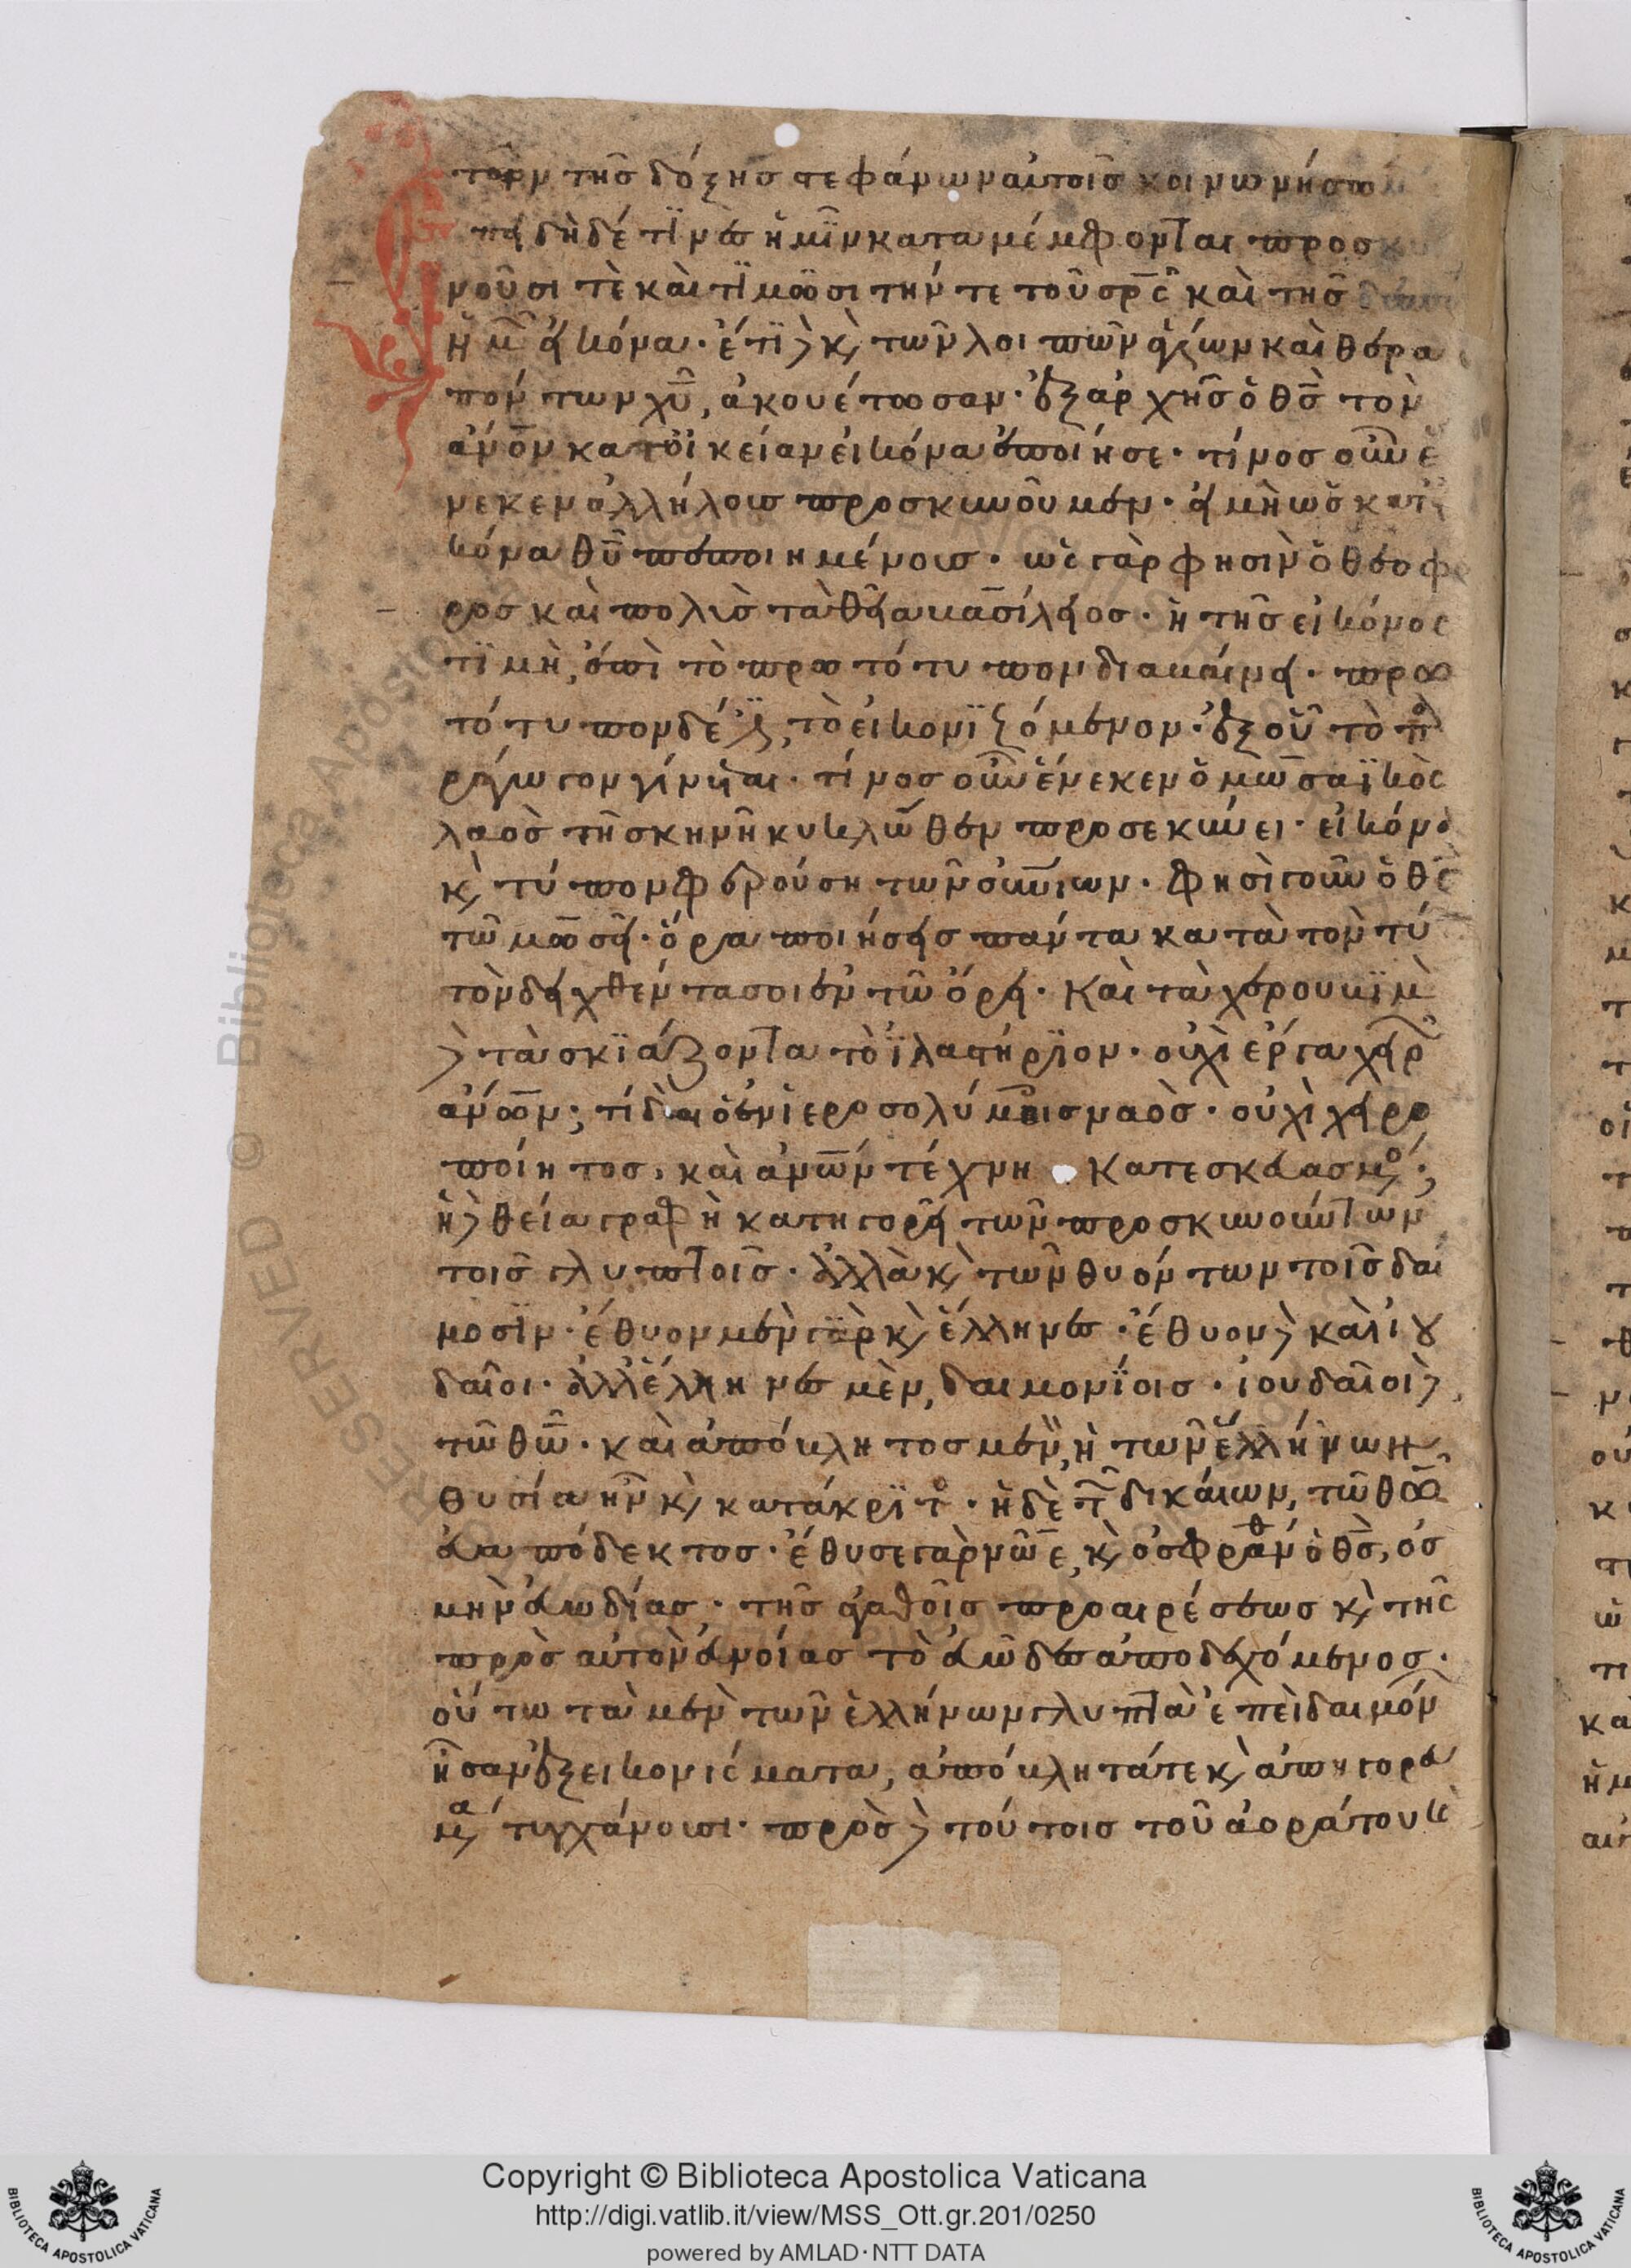 τούτων τῆς δόξης στεφάνων αὐτοῖς κοινωνήσω
πει δὴ δέ τινες ἡμῖν καταμέμφονται προσκυ
νοῦσί τε καὶ τιμῶσι τήν τε τοῦ σρ̅ς καὶ τῆς
ἡμ̅ εἰκόνα· ἔτι δὲ κ̀ τῶν λοιπῶν ἁγίων καὶ θερα
πόντων χυ̅, ἀκουέτωσαν· ἐξαρχῆς ὁ θς̅ τὸν
ἄνον̅ κατοικείαν εἰκόνα ἐποίησε· τίνος οὖν ἕ
νεκεν ἀλλήλοις προσκυνοῦμεν· εἰ μὴ ὡς κατει
κόνα θυ̅ πεποιημένοις· ὡς γάρ φησιν ὁ θεοφό
ρος καὶ πολὺς τὰ θεῖα βασίλειος· ἡ τῆς εἰκόνος
τιμὴ, ἐπὶ τὸ πρωτότυπον διαβαίνει· πρω
τότυπον δέ ἐστι, τὸ εἰκονιζόμενον· ἐξ οὗ τὸ πα
ράγωγον γίνεται· τίνος οὖν ἕνεκεν ὁ μωσαϊκὸς
λαὸς τῆ σκηνῆ κυκλῶθεν προσεκύνει· εἰκόνα
κ̀ τύπον φερούση τῶν οὐνίων· φησὶ γοῦν ὁ θς̅
τῶ μωσῆ· ὅρα ποιήσεις πάντα κατὰ τὸν τύ
τὸν δειχθέντα σοι ἐν τῶ ὄρει· Καὶ τὰ χερουβὶμ
δὲ τὰ σκιάζοντα τὸ ἱλαστήριον· οὐχὶ ἔργα χειρ
ἀνων̅; τί δαὶ ὁ ἐν ἱεροσολύμοις ναὸς· οὐχὶ χειρο
ποίητος, καὶ ἀνων̅ τέχνη Κατεσκευασμένος;
ἡ δὲ θεία γραφὴ κατηγορεῖ τῶν προσκυνούντων
τοῖς γλυπτοῖς· ἀλλὰ κ̀ τῶν θυόντων τοῖς δαί
μοσιν· ἔθυον μὲν γὰρ κ̀ ἕλληνες· ἔθυον δὲ καὶ ἰου
δαῖοι· ἀλλ' ἕλληνες μὲν, δαιμονίοις· ἰουδαῖοι δὲ
τῶ θω̅· καὶ ἀπόβλητος μὲν, ἡ τῶν ἑλλήνων
θυσία ἦν κ̀ κατάκριτος· ἡ δὲ τῶν δικαίων, τῶ θω̅
εὐαπόδεκτος· ἔθυσε γὰρ νῶε, κ̀ ὀσφράνθη ὁ θς̅, ὀσ
μὴν εὐωδίας· τῆς ἀγαθῆς προαιρέσεως κ̀ τῆς
πρὸς αὐτὸν εὐνοίας τὸ εὐῶδες ἀποδεχόμενος·
οὕτω τὰ μὲν τῶν ἑλλήνων γλυπτὰ ἐπεὶ δαιμόν
ἦσαν ἐξεικονίσματα, ἀπόβλητά τε κ̀ ἀπηγορευ
μένα τυγχάνουσι· πρὸς δὲ τούτοις τοῦ ἀοράτου κ̀
Copyright © Biblioteca Apostolica Vaticana
http://digi.vatlib.it/view/MSS_Ott.gr.201/0250
powered by AMLAD·NTT DATA